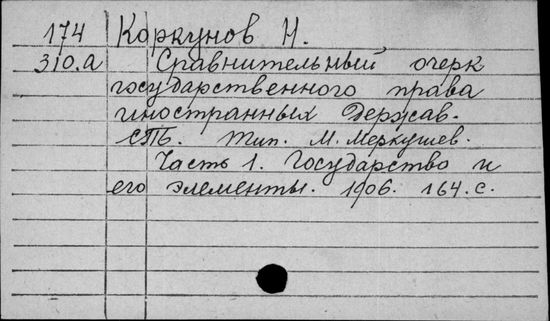 174 Каркунов Н.
310.а Сравнительный очерк
государственного права
иностранных Держав.
СПБ. Тип. М. Меркушев.
Часть 1. Государство и
его элементы. 1906. 164.с.